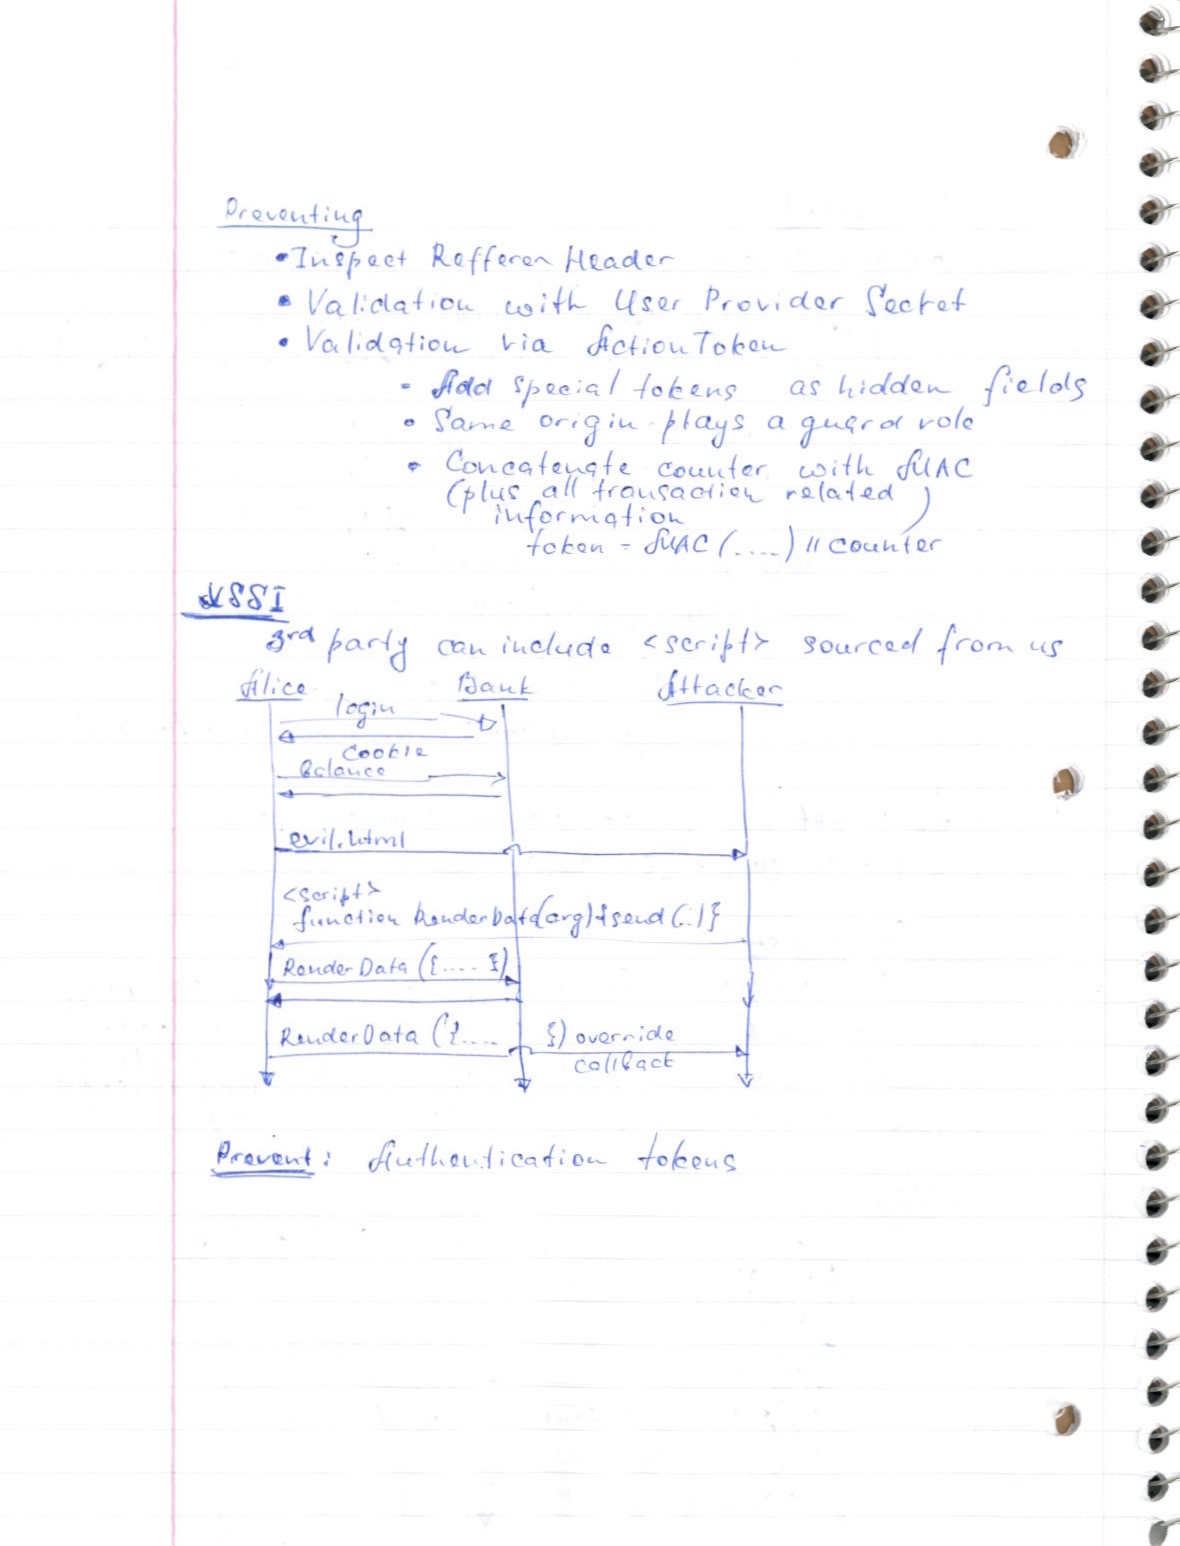 Preventing
• Inspect Refferer Header
• Validation with User Provider Secret
• Validation via Action Token
- Add special tokens as hidden fields
• Same origin plays a guard role
• Concatenate counter with MAC
(plus all transaction related)
information
token = MAC (.....) || counter
XSSI
3rd party can include <script> sourced from us
Alice Bank Attacker
login
Cookie
Balance
evil.html
<script>
function RenderData(arg){send(..)}
RenderData ({.... })
RenderData ({.... }) override
callback
Prevent: Authentication tokens